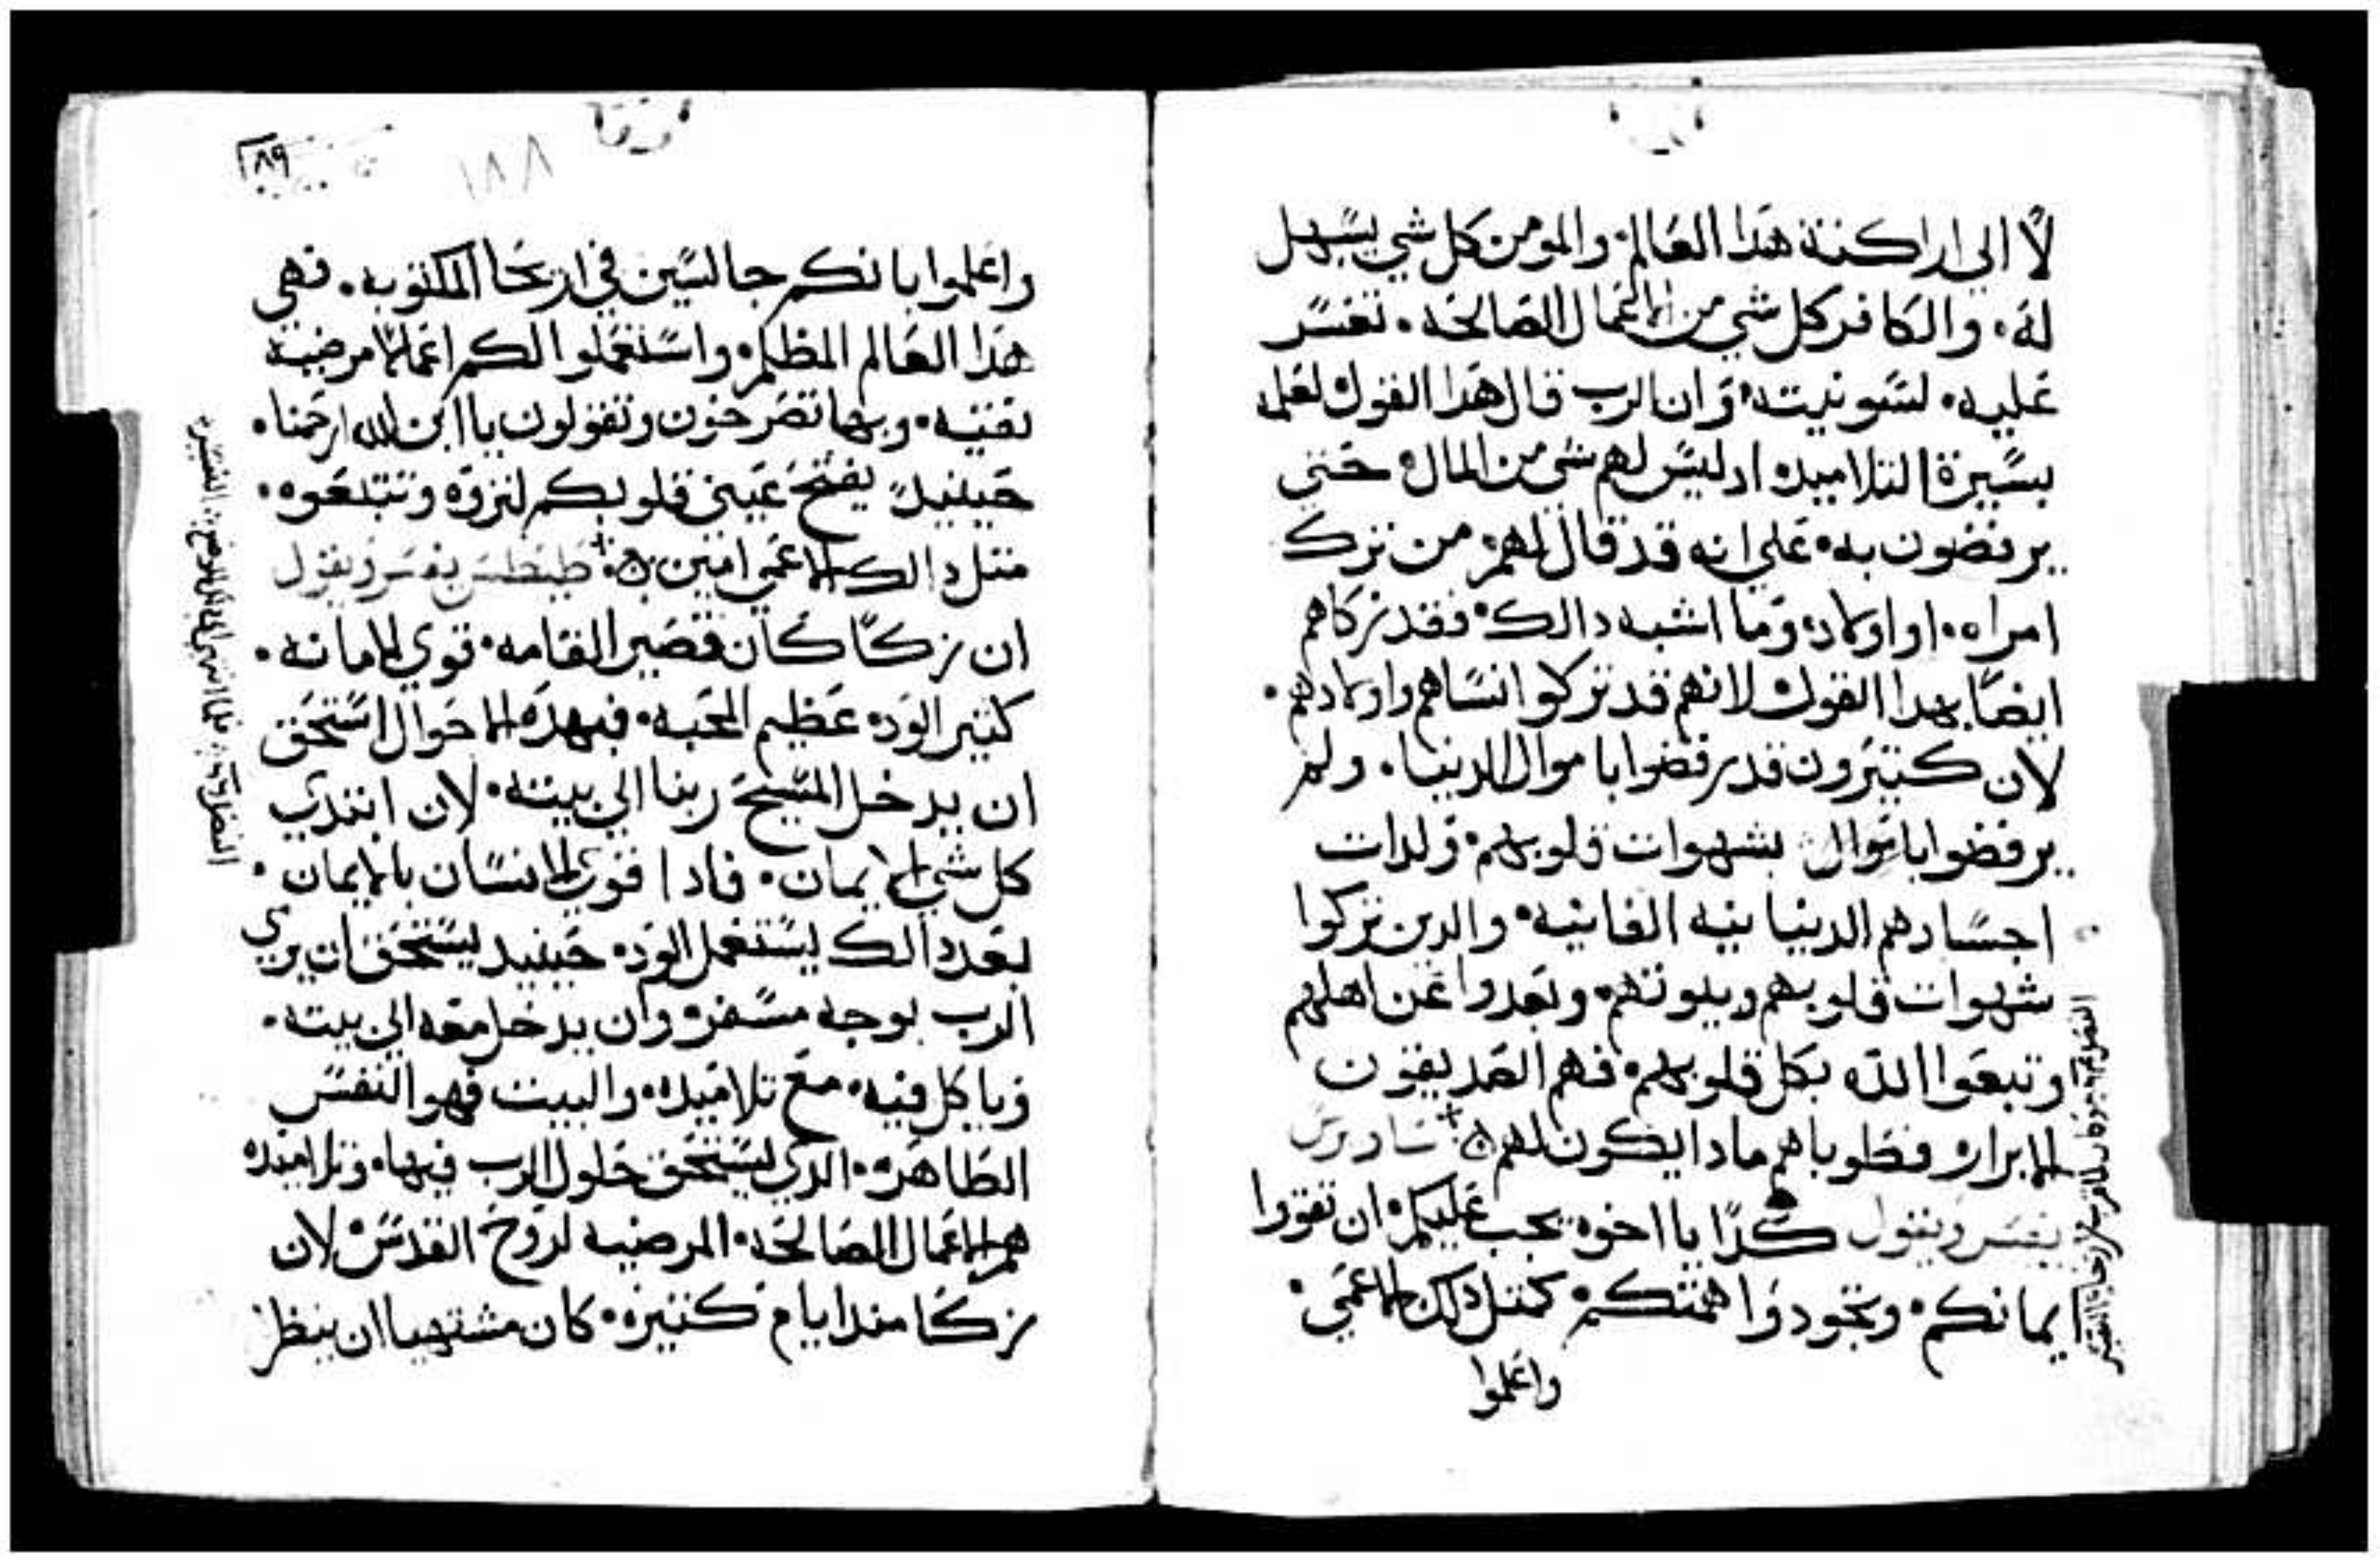 لا الي اراكنة هدا العالم. والمومن كل شي يسهل
له. والكافر كل شي من الاعمال الصالحه. تعسر
عليه. لسو نيته. وان الرب قال هدا القول لعلمه
بسيرة التلاميد. اد ليس لهم شي من المال. حتي
يرفضون به. علي انه قد قال لهم. من ترك
امراه. او اولاد. وما اشبه دالك. فقد تركاهم
ايضا بهدا القول. لانهم قد تركوا انساهم واولادهم.
لان كتيرون قد رفضوا باموال الدنيا. ولم
يرفضوا باموال بشهوات قلوبهم. ولدات
اجسادهم الدنيانيه الفانيه. والدين تركوا
شهوات قلوبهم وبيوتهم. وبعدوا عن اهلهم
وتبعوا الله بكل قلوبهم. فهم الصديقون
الابرار. فطوباهم مادا يكون لهم. ساويرس
يفسر ويقول كدا يا اخوه يجب عليكم. ان تقووا
يمانكم. وتجودوا همتكم. كمتل دلك الاعمي.
واعلموا
لوقا
١٨٨
١٨٩
واعلموا بانكم جالسين في اريحا المكتوبه. فهي
هدا العالم المظلم. واستعملوا الكم اعمالا مرضيه
نقيه. وبها تصرخون وتقولون يا ابن الله ارحمنا.
حينيد يفتح عيني قلوبكم لتروه وتتبعوه.
متل دالك الاعمي امين. طيطس يفسر ويقول
ان زكا كان قصير القامه. قوي الامانه.
كتير الود. عظيم المحبه. فبهده الاحوال استحق
ان يدخل المسيح ربنا الي بيته. لان ابتدي
كل شي الايمان. فادا قوي الانسان بالايمان.
بعد دالك يستعمل الود. حينيد يستحق ان يري
الرب بوجه مسفر. وان يدخل معه الي بيته.
وياكل فيه. مع تلاميده. والبيت فهو النفس
الطاهره. الدي يستحق حلول الرب فيها. وتلاميده
هم الاعمال الصالحه. المرضيه لروح القدس. لان
زكا مند ايام كتيره. كان مشتهيا ان ينظر